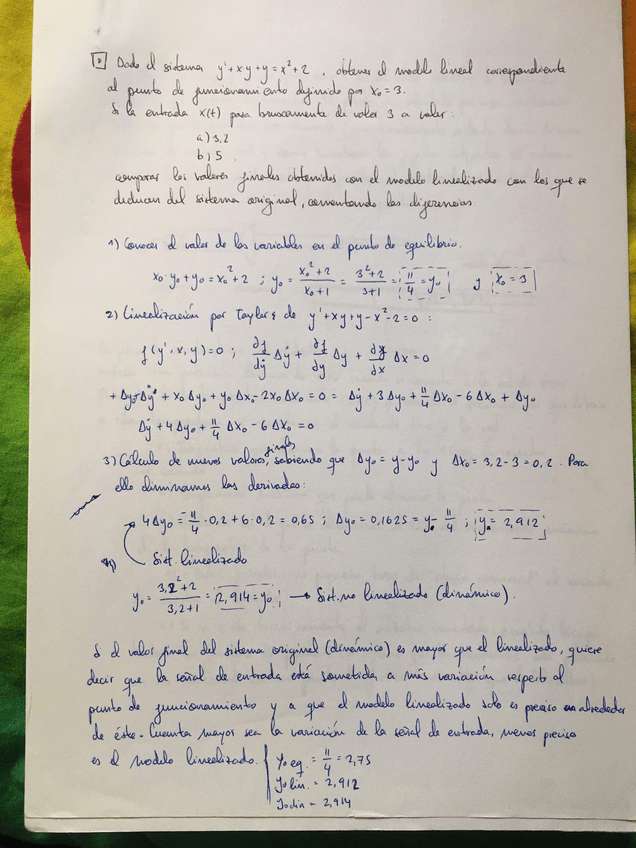 Dado el sistema y' + xy + y = x² + 2 , obtener el modelo lineal correspondiente
al punto de funcionamiento definido por x₀ = 3.
Si la entrada x(t) pasa bruscamente de valor 3 a valor:
a) 3,2
b) 5
comparar los valores finales obtenidos con el modelo linealizado con los que se
deducan del sistema original, comentando las diferencias
1) Conocer el valor de las variables en el punto de equilibrio.
x₀·y₀ + y₀ = x₀² + 2 ; y₀ = (x₀² + 2)/(x₀ + 1) = (3² + 2)/(3 + 1) = 11/4 = y₀ y x₀ = 3
2) Linealización por Taylor de y' + xy + y - x² - 2 = 0 :
f(y', x, y) = 0 ; ∂f/∂ẏ Δẏ + ∂f/∂y Δy + ∂f/∂x Δx = 0
+ Δẏ + x₀ Δy₀ + y₀ Δx₀ - 2x₀ Δx₀ = 0 = Δẏ + 3Δy₀ + 11/4 Δx₀ - 6Δx₀ + Δy₀
Δẏ + 4Δy₀ + 11/4 Δx₀ - 6Δx₀ = 0
3) Cálculo de nuevos valores finales, sabiendo que Δy₀ = y - y₀ y Δx₀ = 3,2 - 3 = 0,2 . Para
ello eliminamos las derivadas:
4Δy₀ = -11/4 · 0,2 + 6·0,2 = 0,65 ; Δy₀ = 0,1625 = y - 11/4 ; y = 2,912
Sist. linealizado
y₀ = (3,2² + 2)/(3,2 + 1) = 2,914 = y₀ ; → Sist. no linealizado (dinámico).
S el valor final del sistema original (dinámico) es mayor que el linealizado, quiere
decir que la señal de entrada está sometida a más variación respecto al
punto de funcionamiento y a que el modelo linealizado solo es preciso en alrededor
de éste. Cuenta mayor sea la variación de la señal de entrada, menos preciso
es el modelo linealizado.
y₀ eq. = 11/4 = 2,75
y₀ lin. = 2,912
y₀ din = 2,914